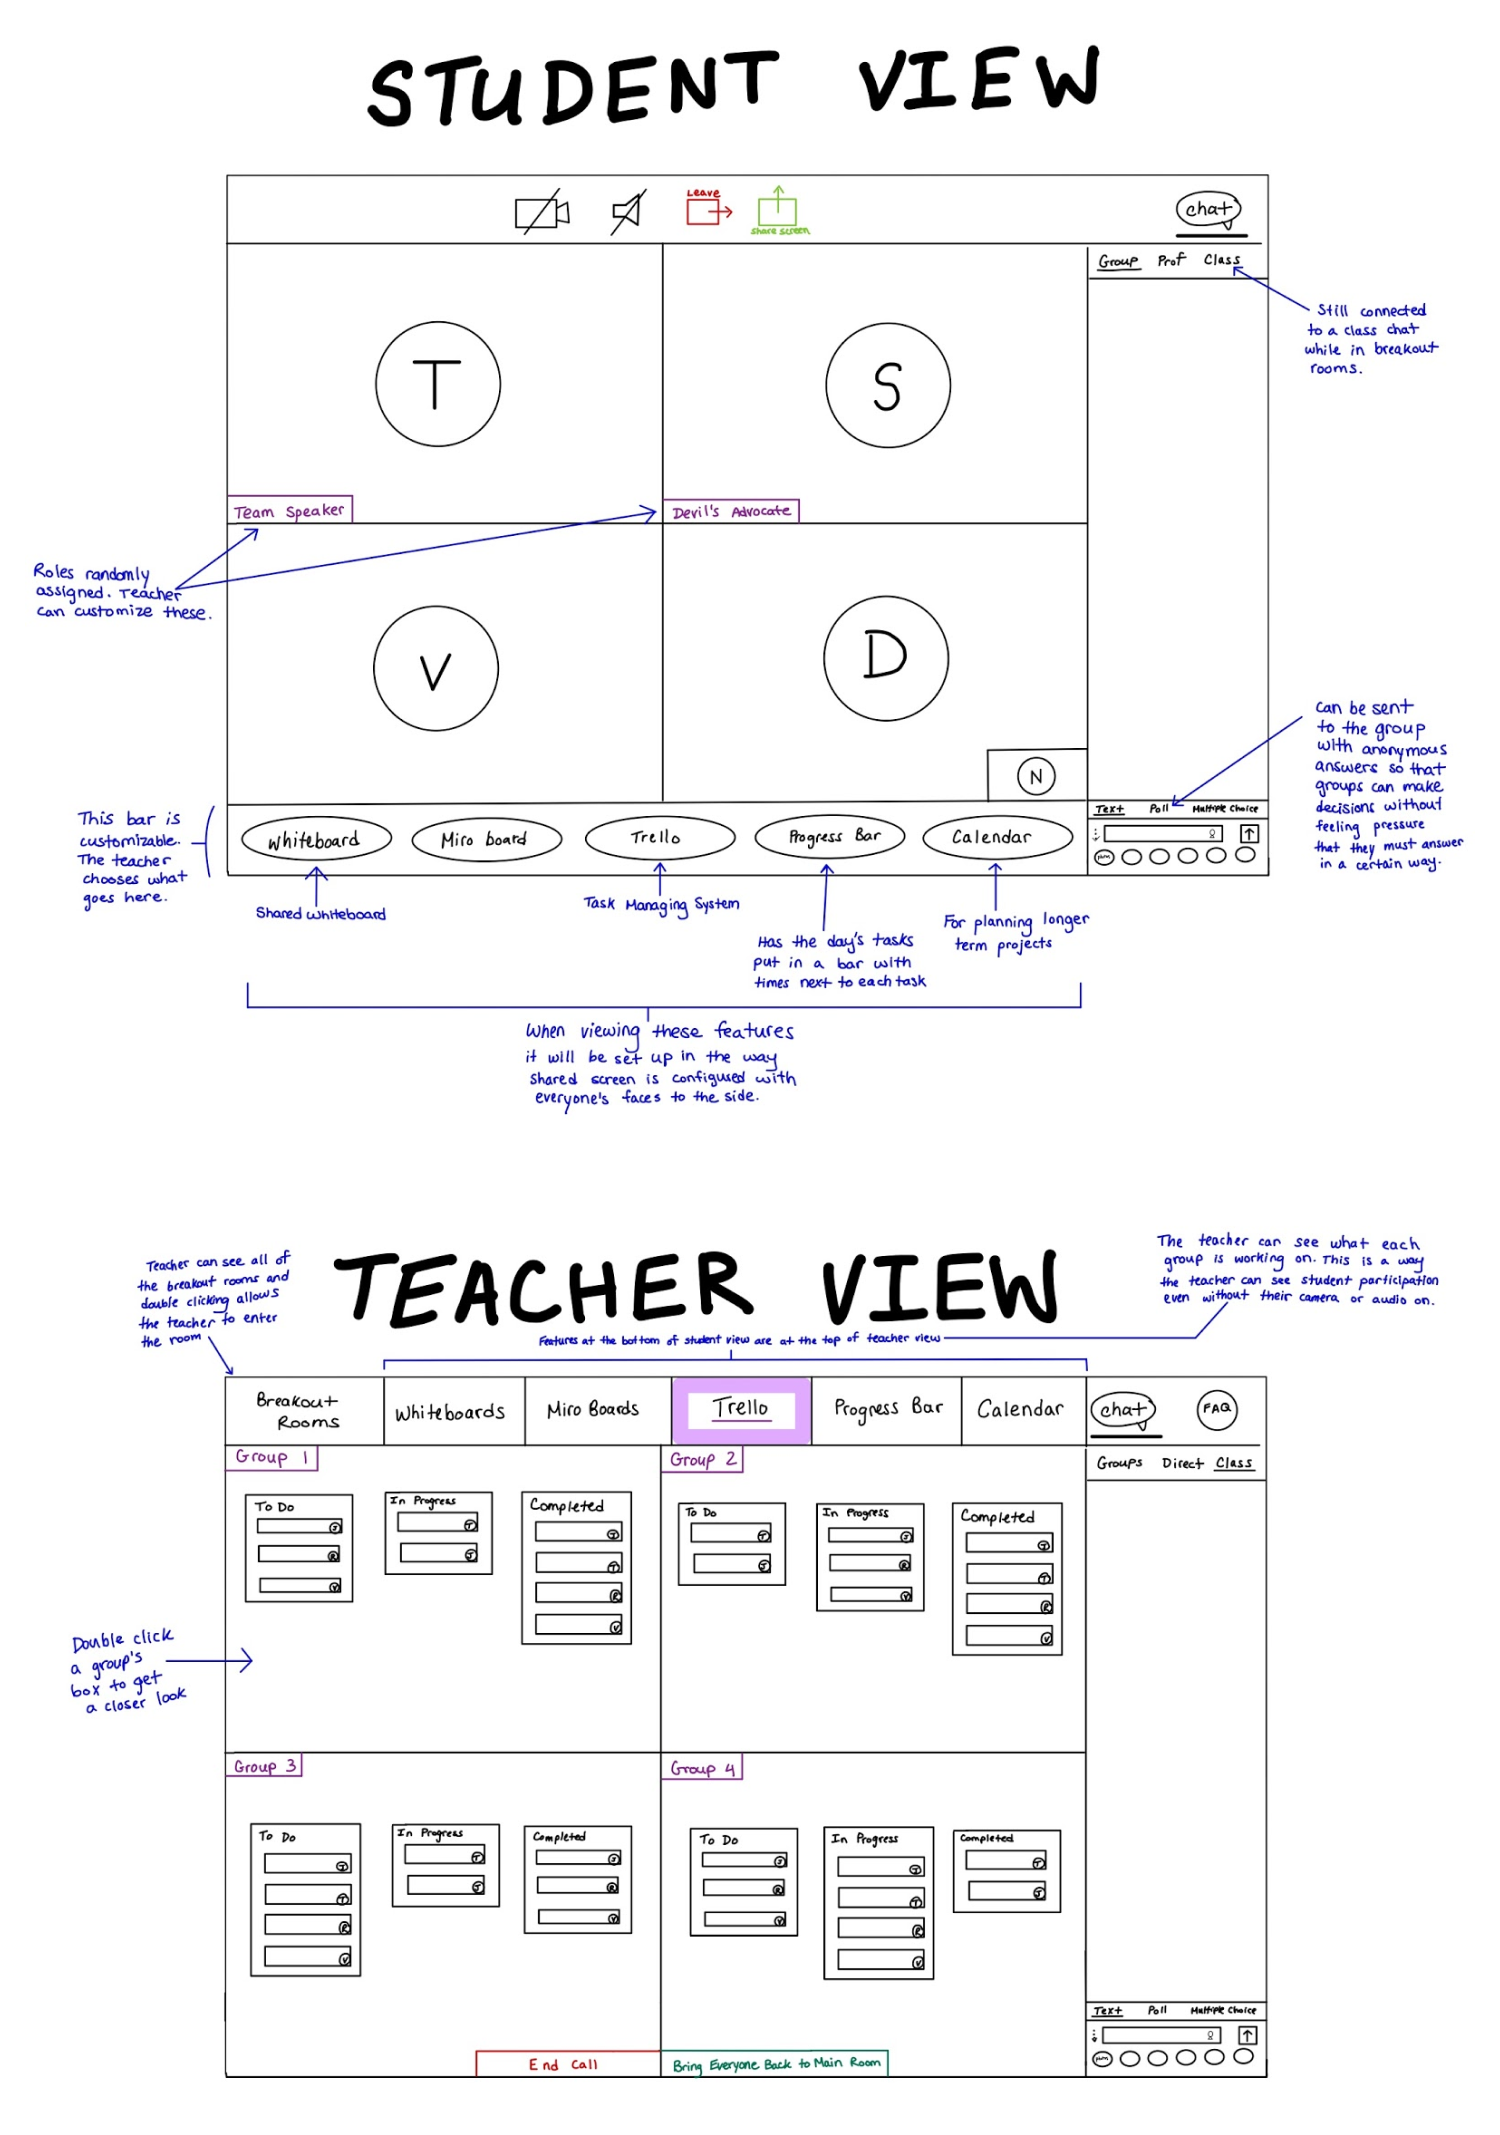 STUDENT VIEW
Leave
share screen
chat
Group Prof Class
Still connected
to a class chat
while in breakout
rooms.
T
S
Team Speaker
Devil's Advocate
Roles randomly
assigned. Teacher
can customize these.
V
D
N
Can be sent
to the group
with anonymous
answers so that
groups can make
decisions without
feeling pressure
that they must answer
in a certain way.
Text Poll Multiple Choice
This bar is
customizable.
The teacher
chooses what
goes here.
Whiteboard
Miro board
Trello
Progress Bar
Calendar
Shared Whiteboard
Task Managing System
Has the day's tasks
put in a bar with
times next to each task
For planning longer
term projects
When viewing these features
it will be set up in the way
shared screen is configused with
everyone's faces to the side.
TEACHER VIEW
Teacher can see all of
the breakout rooms and
double clicking allows
the teacher to enter
the room
The teacher can see what each
group is working on. This is a way
the teacher can see student participation
even without their camera or audio on.
Features at the bottom of student view are at the top of teacher view
Breakout
Rooms
Whiteboards
Miro Boards
Trello
Progress Bar
Calendar
chat
FAQ
Groups Direct Class
Group 1
To Do
S
R
V
In Progress
T
J
Completed
T
T
R
V
Group 2
To Do
T
J
In Progress
S
R
V
Completed
T
T
R
V
Double click
a group's
box to get
a closer look
Group 3
To Do
T
T
R
V
In Progress
T
J
Completed
S
R
V
Group 4
To Do
S
R
V
In Progress
T
T
R
V
Completed
T
J
Text Poll Multiple Choice
End Call
Bring Everyone Back to Main Room